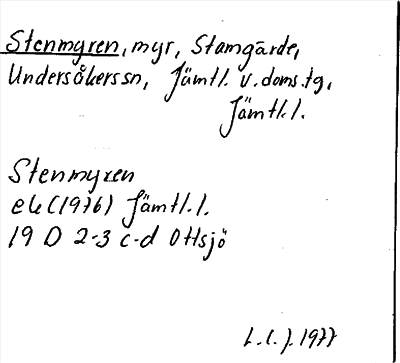 Stenmyren, myr, Stamgärde,
Undersåkerssn, Jämtl. v. doms.tg,
Jämtl.l.
Stenmyren
ek (1976) Jämtl.l.
19 D 2-3 c-d Ottsjö
L.C.J. 1977